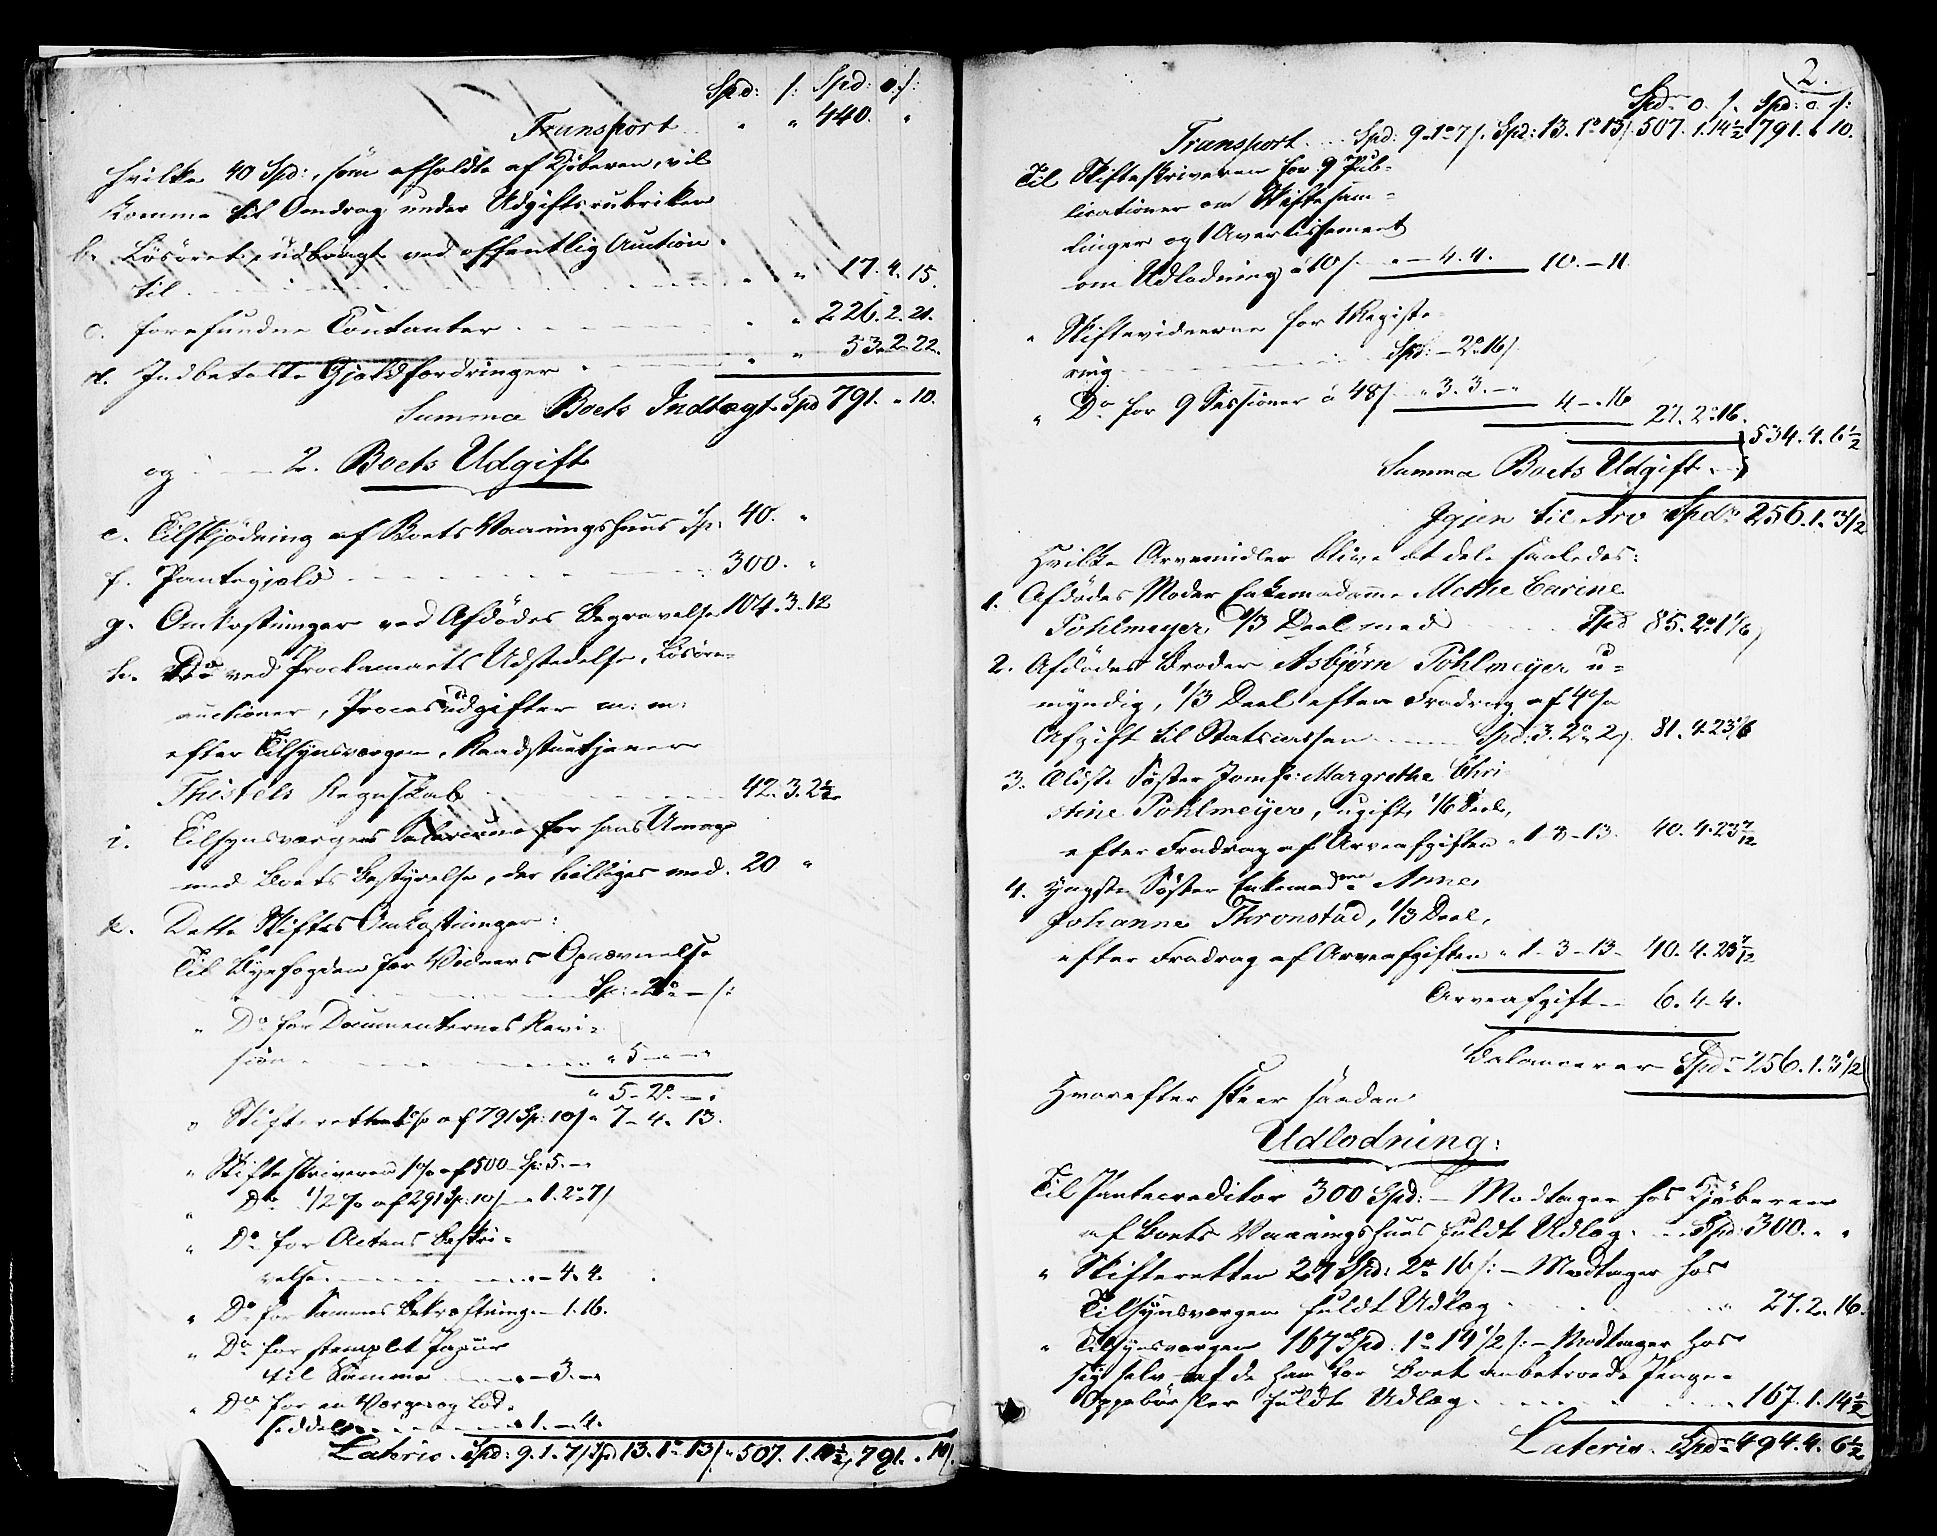 Spd: /: Spd: o. /:
Transport . . " " 440. "
hvilke 40 Spd:, som afholdte af Kjøberen, vil
komme til Omdrag under Udgiftsrubriken
b. Løsøret, udbragt ved offentlig Auction
til . . . . " " 17. 4. 15.
c. forefundne Contanter . . . " " 226. 2. 21.
d. Indbetalte Gjældsfordringer . . " " 53. 2. 22.
Summa Boets Indtægt Spd 791. " 10.
og . . 2. Boets Udgift
e. Tilskjødning af Boets Vaaningshuus Sp: 40. "
f. Pantegjæld . . . . 300. "
g. Omkostninger ved Afdødes Begravelse 104. 3. 12
h. Do ved Proclamaets Udstedelse, Løsøre=
auctioner, Procesudgifter m: m:
efter Tilsynsværgen, Raadstuetjener
Thistels Regnskab . . . 42. 3. 2½
i. Tilsynsværgens Salarium for hans Umag
med Boets Bestyrelse, der billiges med . 20 "
k. Dette Skiftes Omkostninger:
Til Byefogden for Vidners Opnævnelse
Sp: " 2o " – /:
" Do for Documenternes Revi=
sion . . . . " 5 – " – "
" 5 – 2o – "
" Skifteretten 1 p% af 791 Sp: 10/ " 7 – 4. 13.
" Skifteskriveren 1 % af 500 – Sp: 5. –
" Do ½ % af 291 Sp: 10/ – " 1. 2o 7/
" Do for Actens Beskri=
velse . . . . – 4. 4.
" Do for Sammes Bekræftning – 1. 16.
" Do for stemplet Papiir
til Samme . . . " – 3. –
" Do for en Værge og Lod=
seddel . . . " 1. – 4.
Lateris . Spd: 9. 1. 7/ Spd 13. 1o 13/ " 507. 1. 14½ 791. " 10/.
2.
Spd: o. /. Spd: o. /:
Transport . . . Spd: 9 " 1o 7/. Spd: 13. 1o 13/. 507. 1. 14½ 791. " 10.
Til Skifteskriveren for 9 Pub=
licationer om Skiftesam=
linger og 1 Avertissement
om Udlodning à 10/ . " – 4. 4. 10. – 11
" Skiftevidnerne for 1 Registe=
ring . . . Spd: – 2o 16/.
" Do for 9 Sessioner à 48/ . " 3. 3. – " 4 – " 16 27. 2o 16.
Summa Boets Udgift . . } 534. 4. 6½
Igjen til Arv Spdr 256. 1. 3½
Hvilke Arvemidler blive at dele saaledes:
1. Afdødes Moder Enkemadame Methe Carine
Pohlmeyer, 1/3 Deel med . . . Spd 85. 2o 1 1/6
2. Afdødes Broder Asbjørn Pohlmeyer u=
myndig, 1/3 Deel efter Fradrag af 4 %
Afgift til Statscassen . . Spd: 3. 2o 2/. 81. 4. 23 1/6
3. Ældste Søster Jomfr: Margrethe Chri=
stine Pohlmeyer, ugift, 1/6 Deel,
efter Fradrag af Arveafgiften " 1. 3 – 13. 40. 4. 23 7/12
4. Yngste Søster Enkemadme Anne
Johanne Thronstad, 1/3 Deel,
efter Fradrag af Arveafgiften " 1 – 3 – 13 – 40. 4. 23 7/12
Arveafgift – 6. 4 – 4.
Balancerer Spdr 256. 1. 3½
Hvorefter skeer saadan
Udlodning:
Til Pantecreditor 300 Spd: – Modtager hos Kjøberen
af Boets Vaaningshuus fuldt Udlæg . . Spd: 300. " "
" Skifteretten 27 Spd: 2o 16/: – Modtager hos
Tilsynsværgen fuldt Udlæg . . . " 27. 2. 16.
" Tilsynsværgen 167 Spd. 1o 14½/: – Modtager hos
sig selv af de ham for Boet anbetroede Penge=
Oppebørsler fuldt Udlæg . . . 167. 1. 14½
Lateris . Spdr 494. 4. 6½